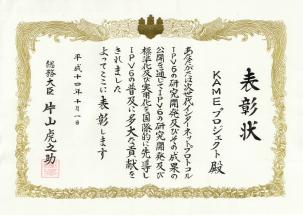 表彰状
KAMEプロジェクト殿
あなたがたは次世代インターネットプロトコル
IPV6の研究開発及びその成果の
公開を通じてIPV6の研究開発及び
標準化及び実用化を国際的に先導し
IPV6の普及に多大な貢献を
されました
よってここに表彰します
平成十四年十月一日
総務大臣 片山虎之助